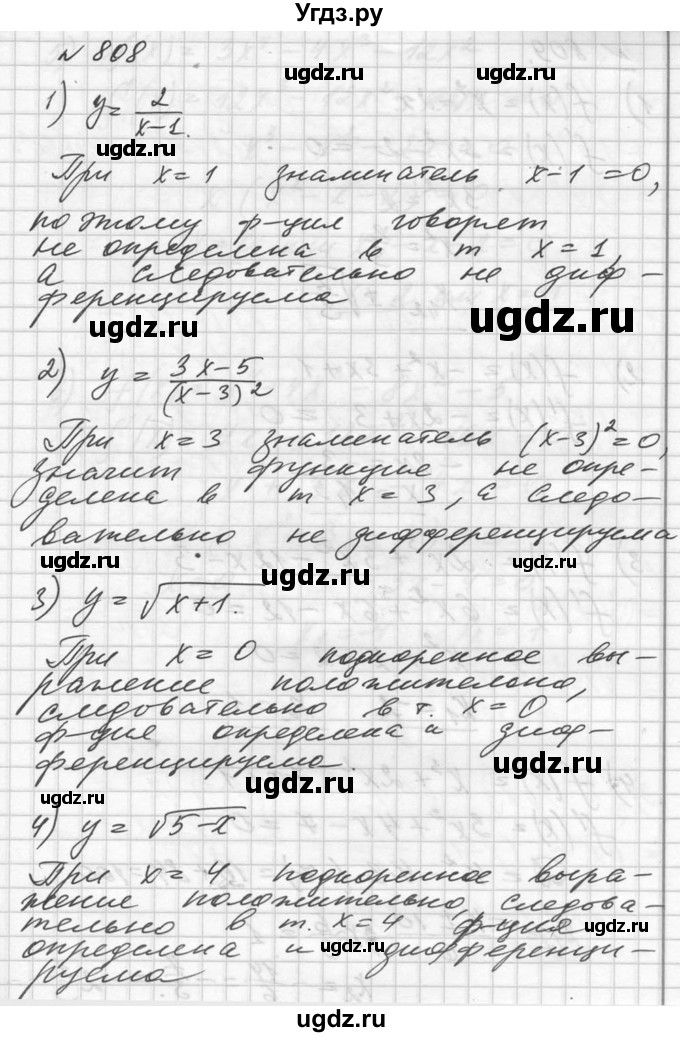 Угдз.ру
№ 808
ugdz.ru ugdz.ru
1) y = 2/(x-1).
ugdz.ru
При x=1 знаменатель x-1=0,
поэтому ф-ция говорят
не определена в т x=1,
а следовательно не диф-
ференцируема
ugdz.ru ugdz.ru
2) y = (3x-5)/(x-3)²
ugdz.ru
При x=3 знаменатель (x-3)²=0,
значит функция не опре-
делена в т x=3, а следо-
вательно не дифференцируема
ugdz.ru ugdz.ru ugdz.ru
3) y = √(x+1).
ugdz.ru
При x=0 подкоренное вы-
ражение положительно,
следовательно в т. x=0
ф-ция определена и диф-
ференцируема.
ugdz.ru ugdz.ru
4) y = √(5-x)
ugdz.ru
При x=4 подкоренное выра-
жение положительно, следова-
тельно в т. x=4 ф-ция
ugdz.ru
определена и дифференци-
ugdz.ru
руема
ugdz.ru
ugdz.ru